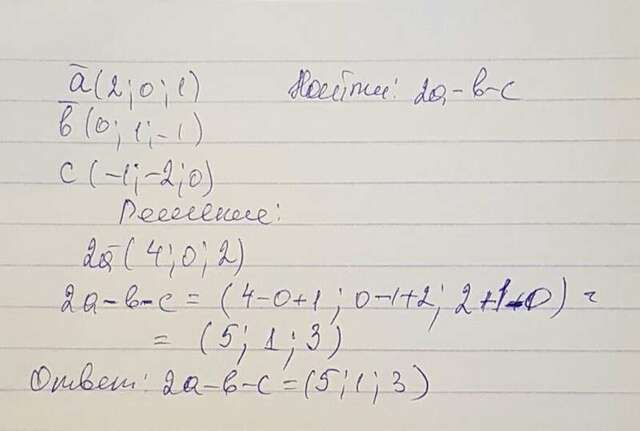 a̅(2; 0; 1) Найти: 2a-b-c
b̅(0; 1; -1)
c(-1; -2; 0)
Решение:
2a̅(4; 0; 2)
2a-b-c = (4-0+1; 0-1+2; 2+1-0) =
= (5; 1; 3)
Ответ: 2a-b-c = (5; 1; 3)